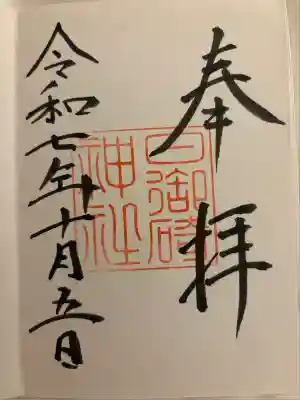 奉拝
日御碕
神社
令和七年十月五日